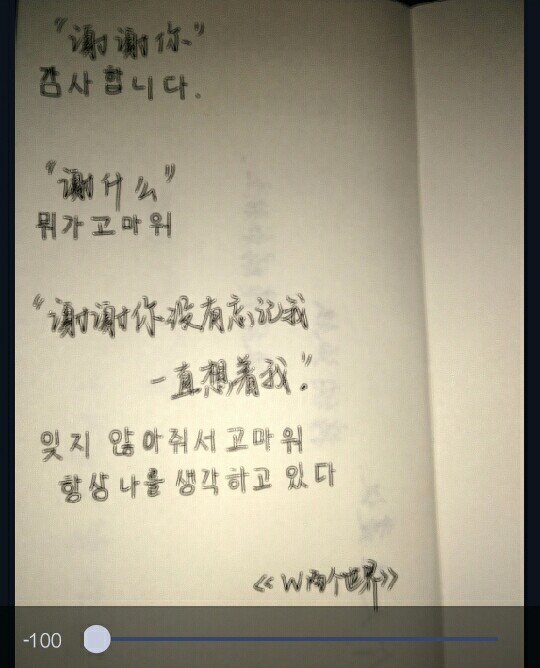 “谢谢你”
감사합니다.
“谢什么”
뭐가고마워
“谢谢你没有忘记我
一直想着我.”
잊지 않아줘서고마워
항상나를 생각하고 있다
《W两个世界》
-100